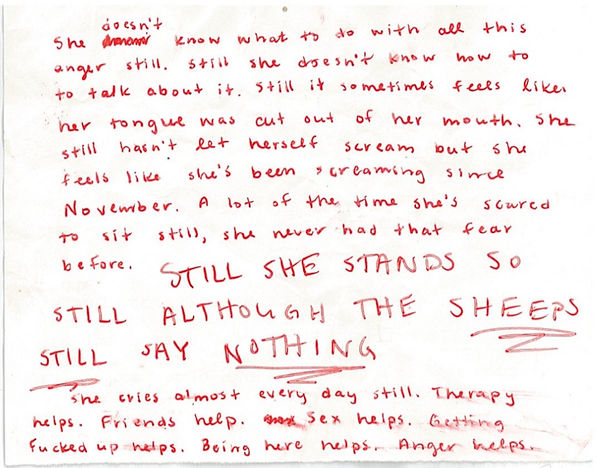 She doesn't know what to do with all this
anger still. Still she doesn't know how to
to talk about it. Still it sometimes feels like
her tongue was cut out of her mouth. She
still hasn't let herself scream but she
feels like she's been screaming since
November. A lot of the time she's scared
to sit still, she never had that fear
before. STILL SHE STANDS SO
STILL ALTHOUGH THE SHEEPS
STILL SAY NOTHING
She cries almost every day still. Therapy
helps. Friends help. Sex helps. Getting
Fucked up helps. Being here helps. Anger helps.